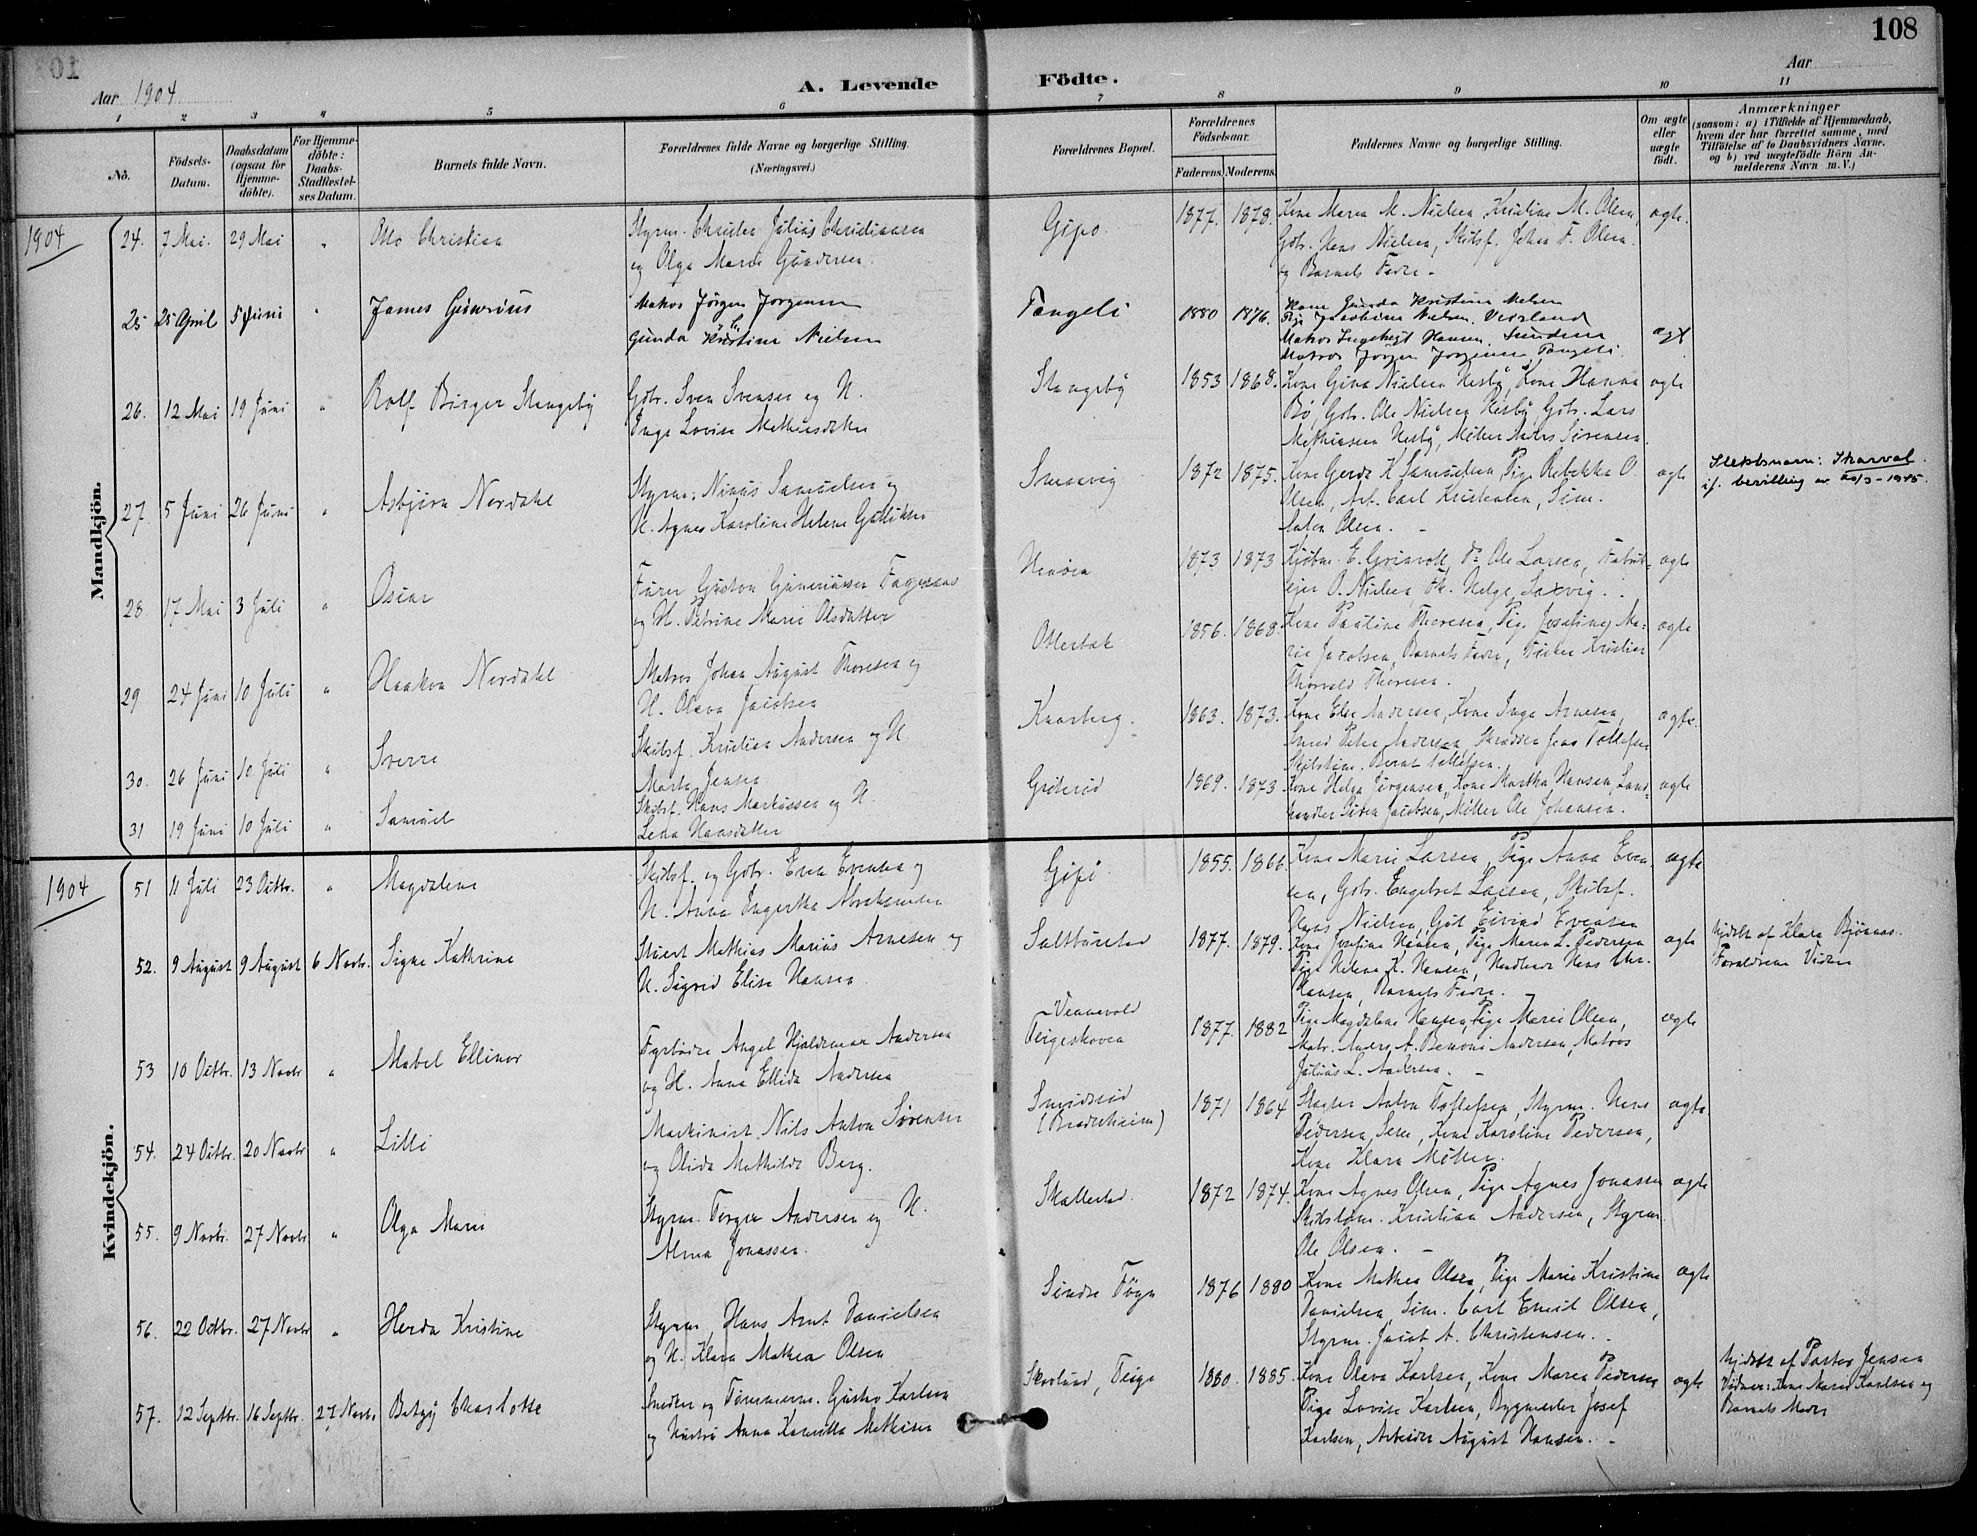 108
Aar 1904
A. Levende Födte.
Aar
1 2 3 4 5 6 7 8 9 10 11
No.
Födsels-Datum.
Daabsdatum (ogsaa for Hjemme-döbte).
For Hjemme-döbte: Daabs-Stadfæstel-ses Datum.
Barnets fulde Navn.
Forældrenes fulde Navne og borgerlige Stilling. (Næringsvei.)
Forældrenes Bopæl.
Forældrenes Födselsaar.
Faderens Moderens
Faddernes Navne og borgerlige Stilling.
Om ægte eller uægte födt.
Anmærkninger
(saasom: a) i Tilfælde af Hjemmedaab, hvem der har forrettet samme, med Tilföielse af to Daabsvidners Navne, og b) ved uægtefödte Börn An-melderens Navn m. V.)
Mandkjön.
1904
24. 7 Mai. 29 Mai " Otto Christian
Styrm. Julius Christiansen
og Olga Marie Gundersen.
Gipø. 1877. 1878.
Kone Maren M. Nielsen, Kristine M. Olsen,
Gbr. Hans Nielsen, Skibsf. Johan F. Olsen.
og Barnets Fader –
ægte.
25 25 April 5 Juni " James
Matros Jörgen Jorgensen
Gunda Kristine Nielsen
1880 1876.
Kone Gunda Kristine Nielsen
Pige Jacobine Nielsen,
Matros Hansen,
Matros Jorgen Jorgensen
ægt
26. 12 Mai 19 Juni " Rolf Birger Stangeby
Gbr. Sven Svensen og H.
Inga Lovise Mathiasdatter
Stangeby 1853 1868.
Kone Gina Nielsen Nesby, Kone Hanna
Bø, Gbr. Ole Nielsen Nesby, Gbr. Lars
Mathiassen Nesby, Møller Anders Sørensen.
ægte
27. 5 Juni 26 Juni " Asbjørn Nordahl
Styrm. Samuelsen og
H. Agnes Karoline Helene Gulliksen
1872 1875.
Kone Gerda K Samuelsen, Pige Rebekka O.
Olsen, Arb. Carl Kristensen, Tøm.
Anton Olsen. –
ægte
Slektsnavn: Skarval
if. bevilling av 20/3-1945.
28 17 Mai 3 Juli " Oscar
Gustav Gunerius
og H. Petrine Marie Olsdatter
1873 1873
Kjøbm. E. Ole Larsen,
O. Nielsen, Helge
ægte
29 24 Juni 10 Juli " Haakon Nordahl
Matros Johan August Thoresen og
H. Olava Jacobsen
Otterbæk 1856. 1868.
Kone Pauline Thoresen, Pige Josefine Ma-
rie Jacobsen, Barnets Fader, Fisker Kristian
Thorvald Thoresen.
ægte
30. 26 Juni 10 Juli " Sverre
Skibsf. Kristian Andersen og H.
Marta Jensen
Knarberg. 1863. 1873.
Kone Else Andersen, Kone Inga Arnesen,
Smed Peter Andersen, Skrædder Jens Tollefsen
Skibstøm. Bernt Tollefsen.
ægte.
31 19 Juni 10 Juli " Samuel
Skibsf. Hans Markussen og H.
Lena Hansdatter
1869. 1873
Kone Helga Jørgensen, Kone Martha Hansen, Land-
handler Søren Jacobsen, Møller Ole Johansen.
ægte
Kvindekjön.
1904
51 11 Juli 23 Octbr. " Magdalene
Skibsf. og Gbr. Even Evensen og
H. Anna Ingertha Abrahamsen
Gipø. 1855. 1866.
Kone Marie Larsen, Pige Anna Even
sen, Gbr. Engebret Larsen, Skibsf.
Hans Nielsen, Gbr. Eivind Evensen
ægte
52. 9 August 9 August 6 Novbr. Signe Kathrine
Stuert Mathias Marius Arnesen og
H. Sigrid Elise Hansen
1877. 1879.
Kone Josefine Hansen, Pige Maren L. Pedersen
Pige Helene K. Hansen, Hans Chr.
Hansen, Barnets Fader. –
ægte
Hjdøbt af Klara
Forældrene Vidner
53 10 Octbr. 13 Novbr " Mabel Ellinor
Fyrbøder Angel Hjaldemar Andersen
og H. Anna Ellida Andersen
Teigeskoven 1877. 1882
Pige Magdalene Hansen, Pige Marie Olsen,
Matr. Anders A. Andersen, Matros
Julius L. Andersen. –
ægte
54. 24 Octbr. 20 Novbr " Lilli
Maskinist Nils Anton Sørensen
og Olida Mathilde Berg.
Smidsrød 1871 1864
Slagter Anton Tollefsen, Styrm. Hans
Pedersen, Kone Karoline Pedersen,
Kone Klara Møller.
ægte.
55. 9 Novbr. 27 Novbr " Olga Marie
Styrm. Torger Andersen og H.
Alma Jonassen.
Skallestad. 1872 1874.
Kone Agnes Olsen, Pige Agnes Jonassen
Skibstøm. Kristian Andersen, Styrm.
Ole Olsen. –
ægte
56. 22 Octbr. 27 Novbr " Herda Kristine
Styrm. Hans Arnt Danielsen
og H. Klara Mathea Olsen
Søndre Føyn 1876 1880
Kone Mathea Olsen, Pige Marie Kristine
Danielsen, Tøm. Carl Emil Olsen,
Styrm. Jacob A. Christensen. –
ægte
57. 12 Septbr. 16 Septbr. 27 Novbr Betzy Charlotte
Snedker og Tømmerm. Gustav Karlsen
og Hustru Anna Kamilla Mathisen
Skovlund, Teige 1880. 1885.
Kone Olava Karlsen, Kone Maren Pedersen
Pige Lovise Karlsen, Bygmester Josef
Karlsen, Arbeider August Hansen. –
ægte
Hjdøbt af Pastor Jensen
Vidner: Kone Maren Karlsen og
Barnets Moder